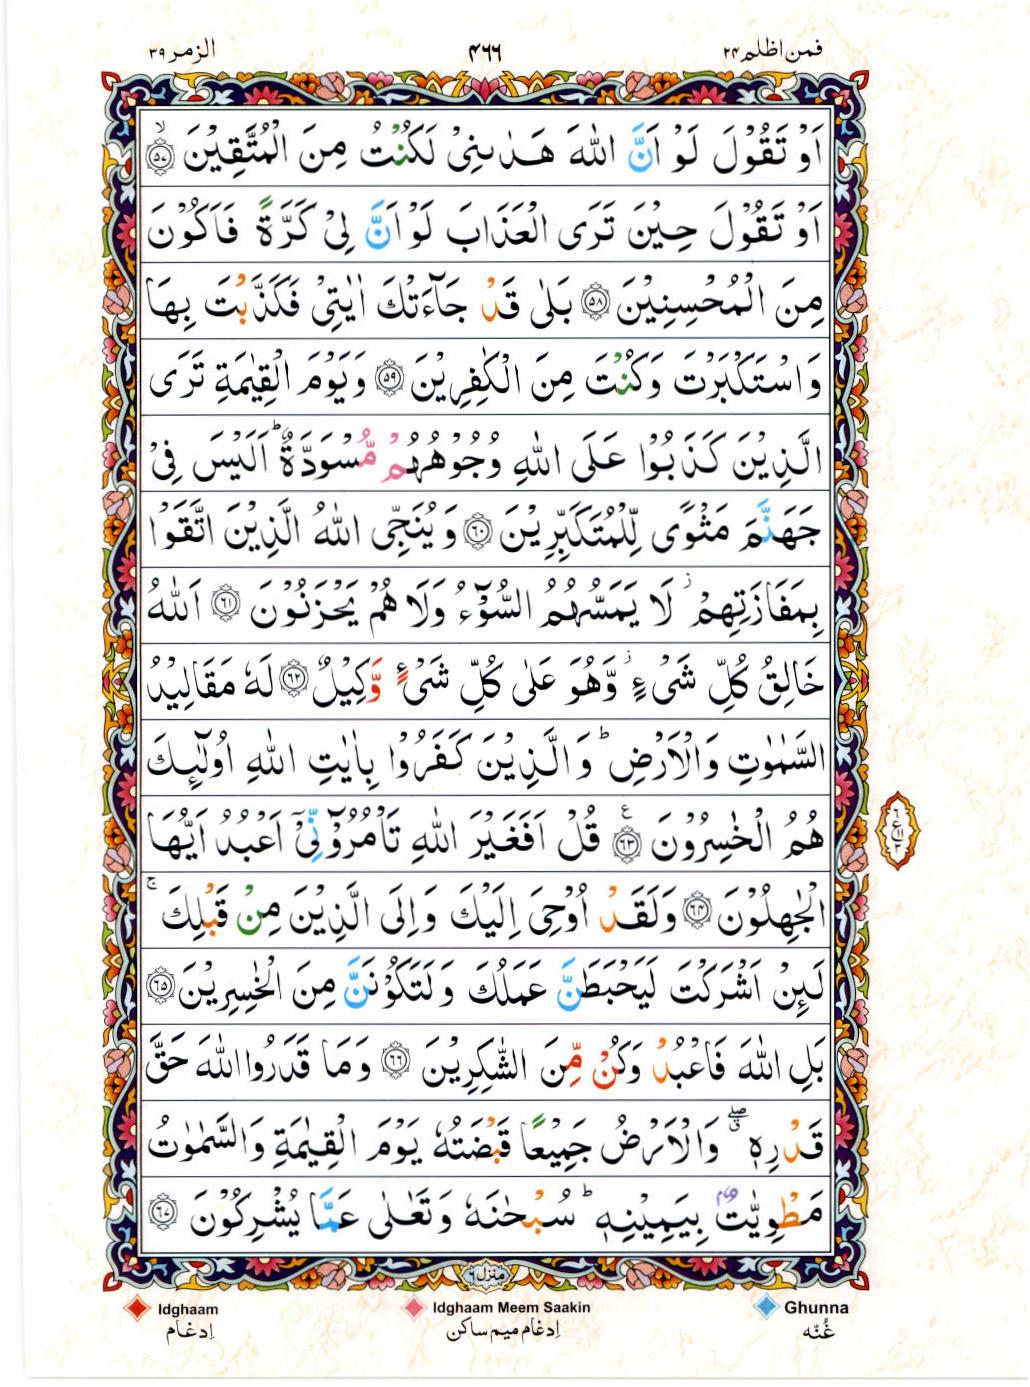 فمن اظلم ۲۴
۴۶۶
الزمر ۳۹
اَوْ تَقُوْلَ لَوْ اَنَّ اللّٰهَ هَدٰىنِیْ لَكُنْتُ مِنَ الْمُتَّقِیْنَ ۙ﴿۵۷﴾
اَوْ تَقُوْلَ حِیْنَ تَرَی الْعَذَابَ لَوْ اَنَّ لِیْ كَرَّةً فَاَكُوْنَ
مِنَ الْمُحْسِنِیْنَ ﴿۵۸﴾ بَلٰی قَدْ جَآءَتْكَ اٰیٰتِیْ فَكَذَّبْتَ بِهَا
وَاسْتَكْبَرْتَ وَكُنْتَ مِنَ الْكٰفِرِیْنَ ﴿۵۹﴾ وَیَوْمَ الْقِیٰمَةِ تَرَی
الَّذِیْنَ كَذَبُوْا عَلَی اللّٰهِ وُجُوْهُهُمْ مُّسْوَدَّةٌ ؕ اَلَیْسَ فِیْ
جَهَنَّمَ مَثْوًی لِّلْمُتَكَبِّرِیْنَ ﴿۶۰﴾ وَیُنَجِّی اللّٰهُ الَّذِیْنَ اتَّقَوْا
بِمَفَازَتِهِمْ ؗ لَا یَمَسُّهُمُ السُّوْٓءُ وَلَا هُمْ یَحْزَنُوْنَ ﴿۶۱﴾ اَللّٰهُ
خَالِقُ كُلِّ شَیْءٍ ؗ وَّهُوَ عَلٰی كُلِّ شَیْءٍ وَّكِیْلٌ ﴿۶۲﴾ لَهٗ مَقَالِیْدُ
السَّمٰوٰتِ وَالْاَرْضِ ؕ وَالَّذِیْنَ كَفَرُوْا بِاٰیٰتِ اللّٰهِ اُولٰٓئِكَ
هُمُ الْخٰسِرُوْنَ ﴿۶۳﴾ ع قُلْ اَفَغَیْرَ اللّٰهِ تَاْمُرُوْٓنِّیْٓ اَعْبُدُ اَیُّهَا
الْجٰهِلُوْنَ ﴿۶۴﴾ وَلَقَدْ اُوْحِیَ اِلَیْكَ وَاِلَی الَّذِیْنَ مِنْ قَبْلِكَ ۚ
لَئِنْ اَشْرَكْتَ لَیَحْبَطَنَّ عَمَلُكَ وَلَتَكُوْنَنَّ مِنَ الْخٰسِرِیْنَ ﴿۶۵﴾
بَلِ اللّٰهَ فَاعْبُدْ وَكُنْ مِّنَ الشّٰكِرِیْنَ ﴿۶۶﴾ وَمَا قَدَرُوا اللّٰهَ حَقَّ
قَدْرِهٖ ۖۗ وَالْاَرْضُ جَمِیْعًا قَبْضَتُهٗ یَوْمَ الْقِیٰمَةِ وَالسَّمٰوٰتُ
مَطْوِیّٰتٌۢ بِیَمِیْنِهٖ ؕ سُبْحٰنَهٗ وَتَعٰلٰی عَمَّا یُشْرِكُوْنَ ﴿۶۷﴾
۶
ع ۱۱
۳
منزل ۶
Idghaam
Idghaam Meem Saakin
Ghunna
اِدغام
اِدغام میم ساکن
غُنّه